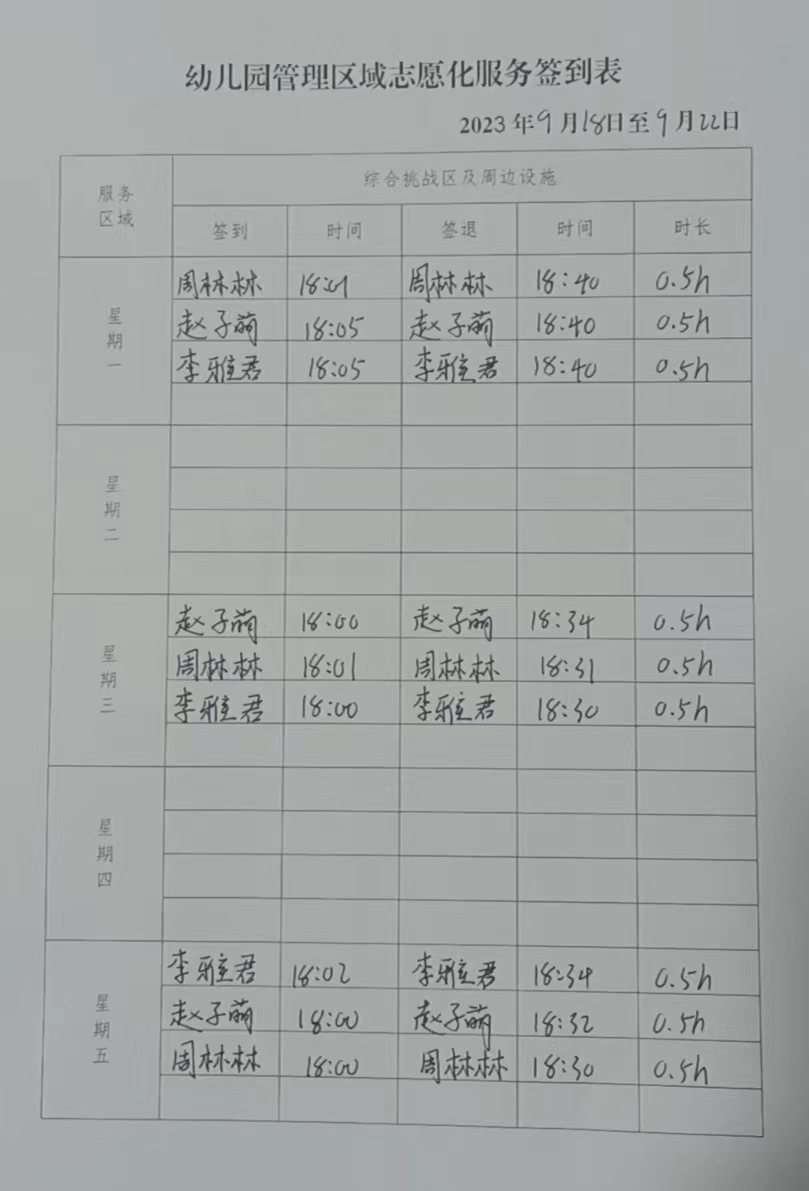 幼儿园管理区域志愿化服务签到表
2023年9月18日至9月22日
服务区域 综合挑战区及周边设施
签到 时间 签退 时间 时长
星期一
周林林 18:01 周林林 18:40 0.5h
赵子萌 18:05 赵子萌 18:40 0.5h
李雅君 18:05 李雅君 18:40 0.5h
星期二
星期三
赵子萌 18:00 赵子萌 18:34 0.5h
周林林 18:01 周林林 18:31 0.5h
李雅君 18:00 李雅君 18:30 0.5h
星期四
星期五
李雅君 18:02 李雅君 18:34 0.5h
赵子萌 18:00 赵子萌 18:32 0.5h
周林林 18:00 周林林 18:30 0.5h